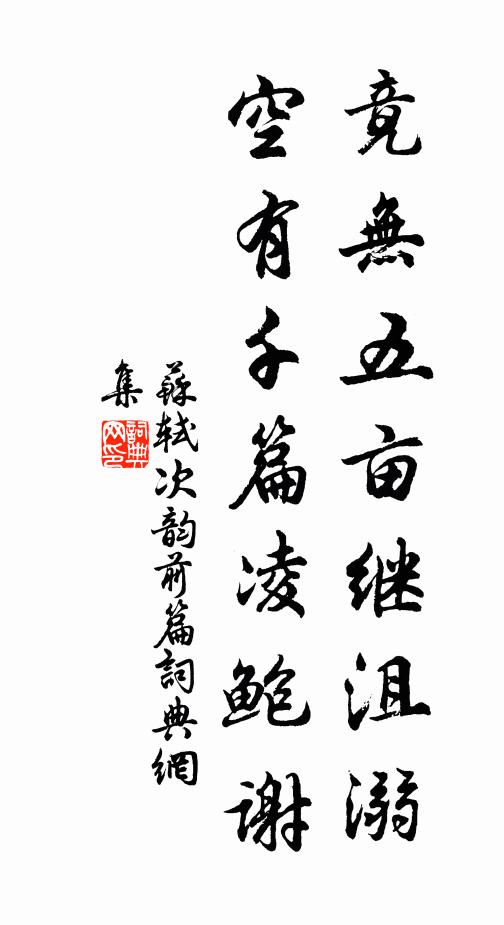 竟無五亩继沮溺
空有千篇凌鲍谢
蘇轼次韵前篇詞典網
集
詞典网印